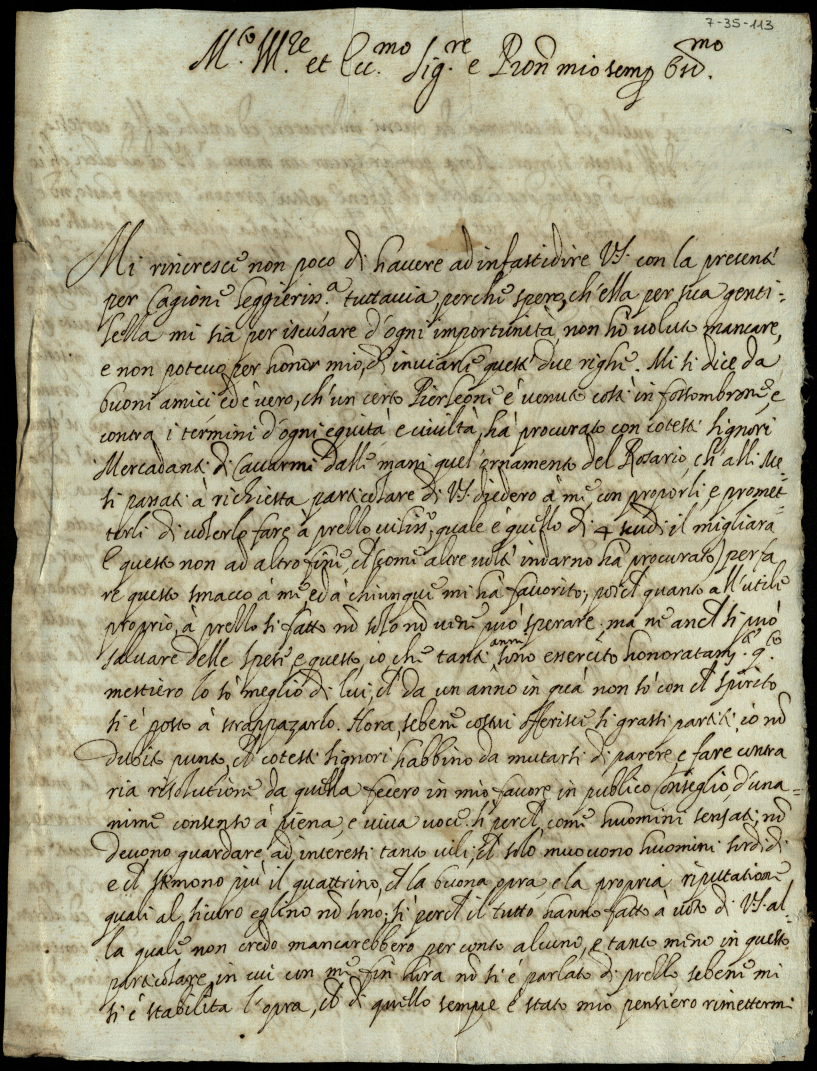 7-35-113
M.co M.re et Ecc.mo Sig.re e Pron mio semp
Mi rincresce non poco di havere ad infastidire V.S. con la presente
per cagione leggieriss.a tuttavia, perche spero, ch'ella per sua genti=
lezza mi sia per iscusare d'ogni importunità, non hò voluto mancare,
e non potevo, per honor mio, d'inviarle queste due righe. Mi si dice da
buoni amici ed è vero, ch'un certo Pier Leone è venuto costì in fossombrone, e
contra i termini d'ogni equità e civiltà, hà procurato con cotesti Signori
Mercadanti di cavarmi dalle mani quel'ornamento del Rosario, ch'alli Me=
si passati à richiesta particolare di V.S. diedero à me con proporli, e promet=
terli di volerlo fare à prezzo viliss.o, quale è quello di 4 scudi il migliara
E questo non ad altro fine, ch (come altre volte indarno hà procurato) per fa
re questo smacco à me ed à chiunque mi hà favorito; poich quanto all'utile
proprio, à prezzo sì fatto nō solo nō viene può sperare, ma ne anch si può
salvare delle spese, e questo, io che tanti anni sono essercito honoratam.te q.o
mestiero lo sò meglio di lui, ch da un anno in quà non sò con ch spirito
si è posto à strappazarlo. Hora, sebene costui offerisce sì grassi partiti, io nō
dubito punto, ch cotesti Signori habbino da mutarsi di parere, e fare contra
ria risolutione da quella fecero in mio favore in publico Conseglio, d'una=
nime consento à piena, e viva voce: sì perch, come huomini sensati, nō
devono guardare ad interessi tanto vili, ch solo muovono huomini sordidi
e ch stimono più il quattrino, ch la buona opra, e la propria riputatione
quali al sicuro eglino nō sono; sì perch il tutto hanno fatto à voto di V.S. al=
la quale non credo mancarebbero per conto alcuno, e tanto meno in questo
particolare, in cui con me fin hora nō si è parlato di prezzo sebene mi
si è stabilita l'opra, ch di quello sempre è stato mio pensiero rimettermi